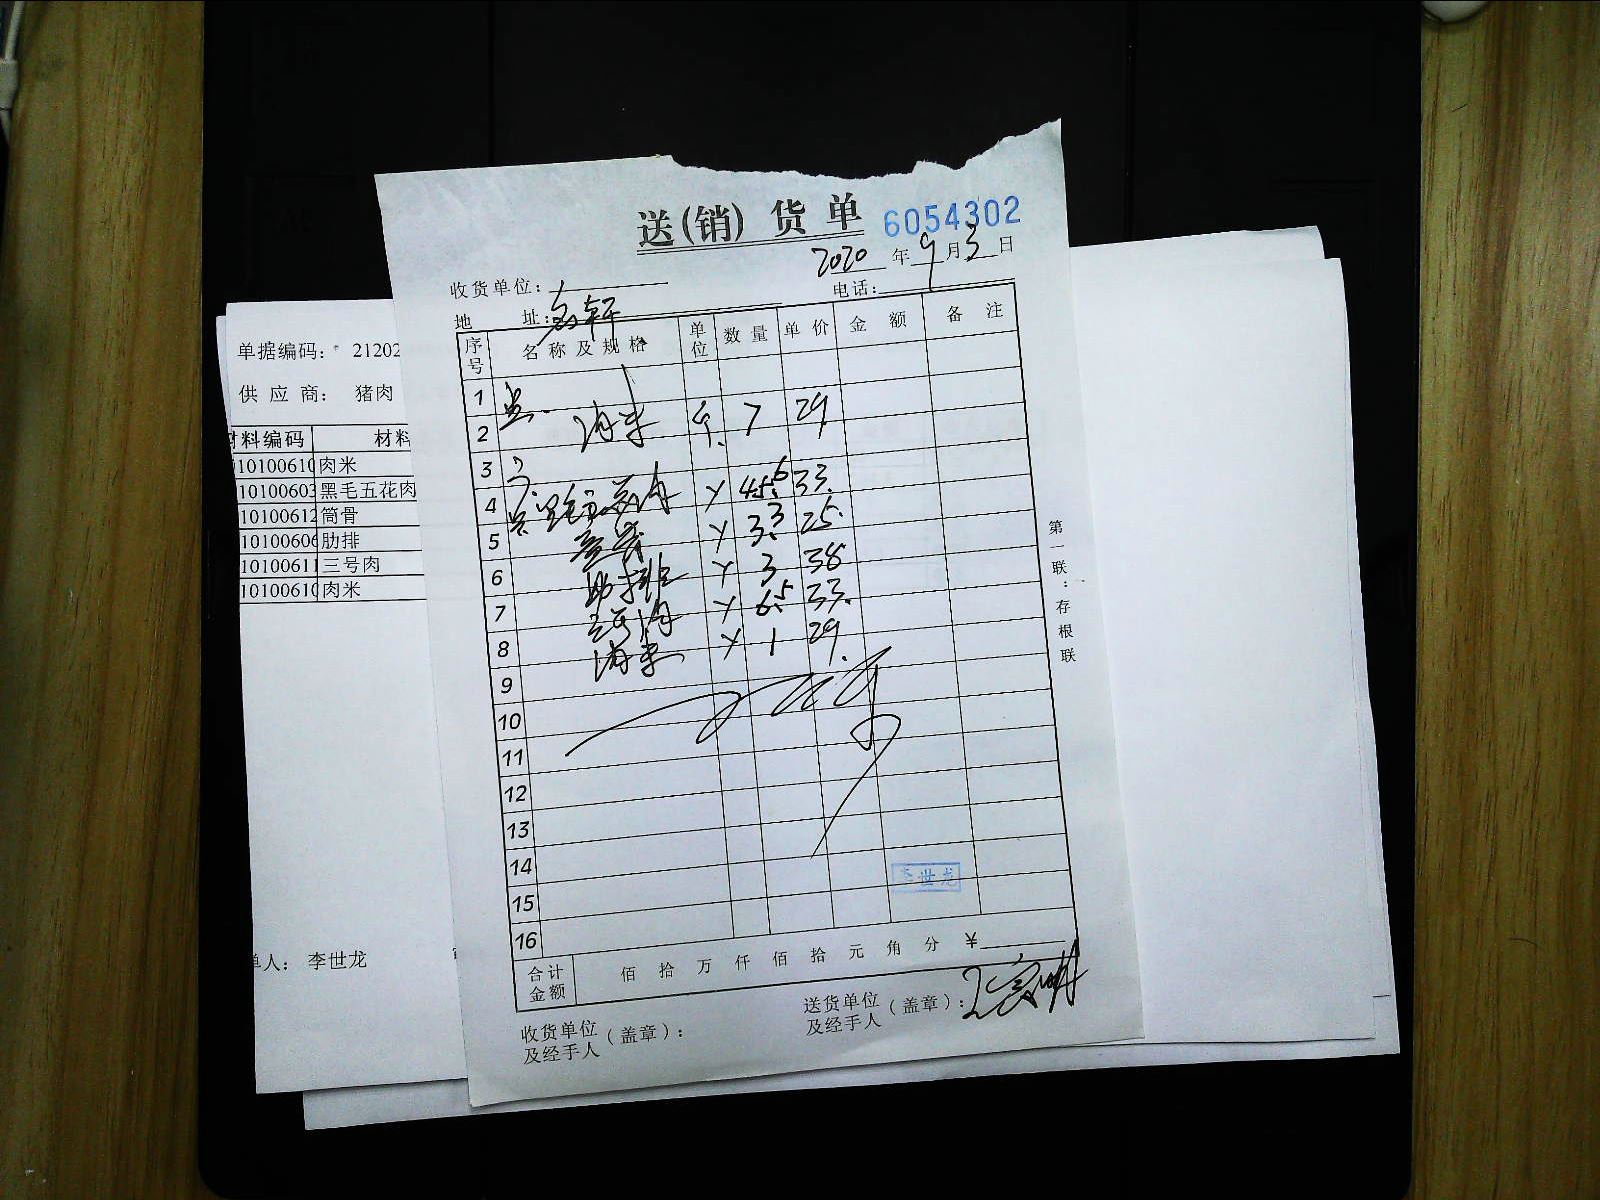 送(销)货单 6054302
2020年9月3日
收货单位:
电话:
地 址:
序号 名称及规格 单位 数量 单价 金额 备注
1
2 肉米 斤. 7 29.
3
4 黑毛五花肉 45.6 33.
5 童骨 3.3 25.
6 肋排 3 38
7 三号肉 6.5 33.
8 肉米 1 29.
9
10
11
12
13
14
15
16
合计金额 佰拾万仟佰拾元角分 ¥
收货单位及经手人(盖章):
送货单位及经手人(盖章):
第一联:存根联
李世龙
单据编码: 21202
供应商: 猪肉
材料编码 材料
10100610 肉米
10100603 黑毛五花肉
10100612 筒骨
10100606 肋排
10100611 三号肉
10100610 肉米
单人: 李世龙